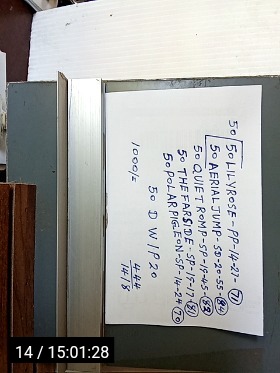 50 50 LILYROSE - PP - 14-27 - 71
50 AERIAL JUMP - SD - 20-55 - 84
50 QUIET ROMP - SP - 19-45 - 82
50 THE FAR SIDE - SP - 15-17 81
50 POLAR PIGEON - SP - 14-24 70
50 D W I P 20
1000/=
444
14/8
14 / 15:01:28